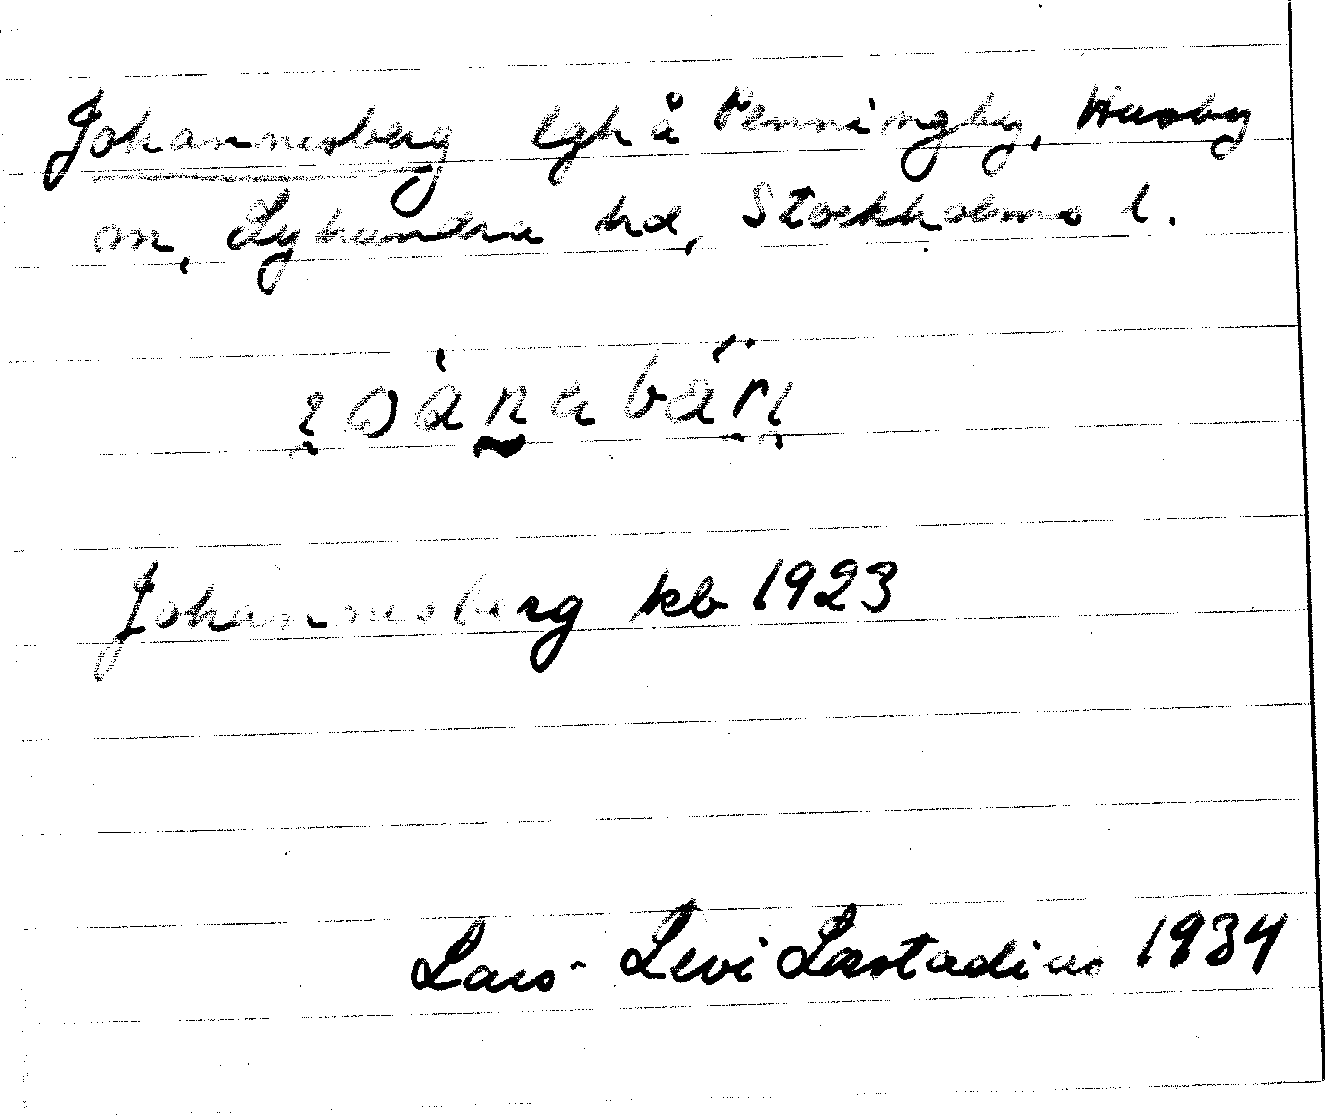 Johannesberg lgh å Penningby, Husby
sn, Lyhundra hd, Stockholms l.
Johannesberg kb 1923
Lars-Levi Læstadius 1934